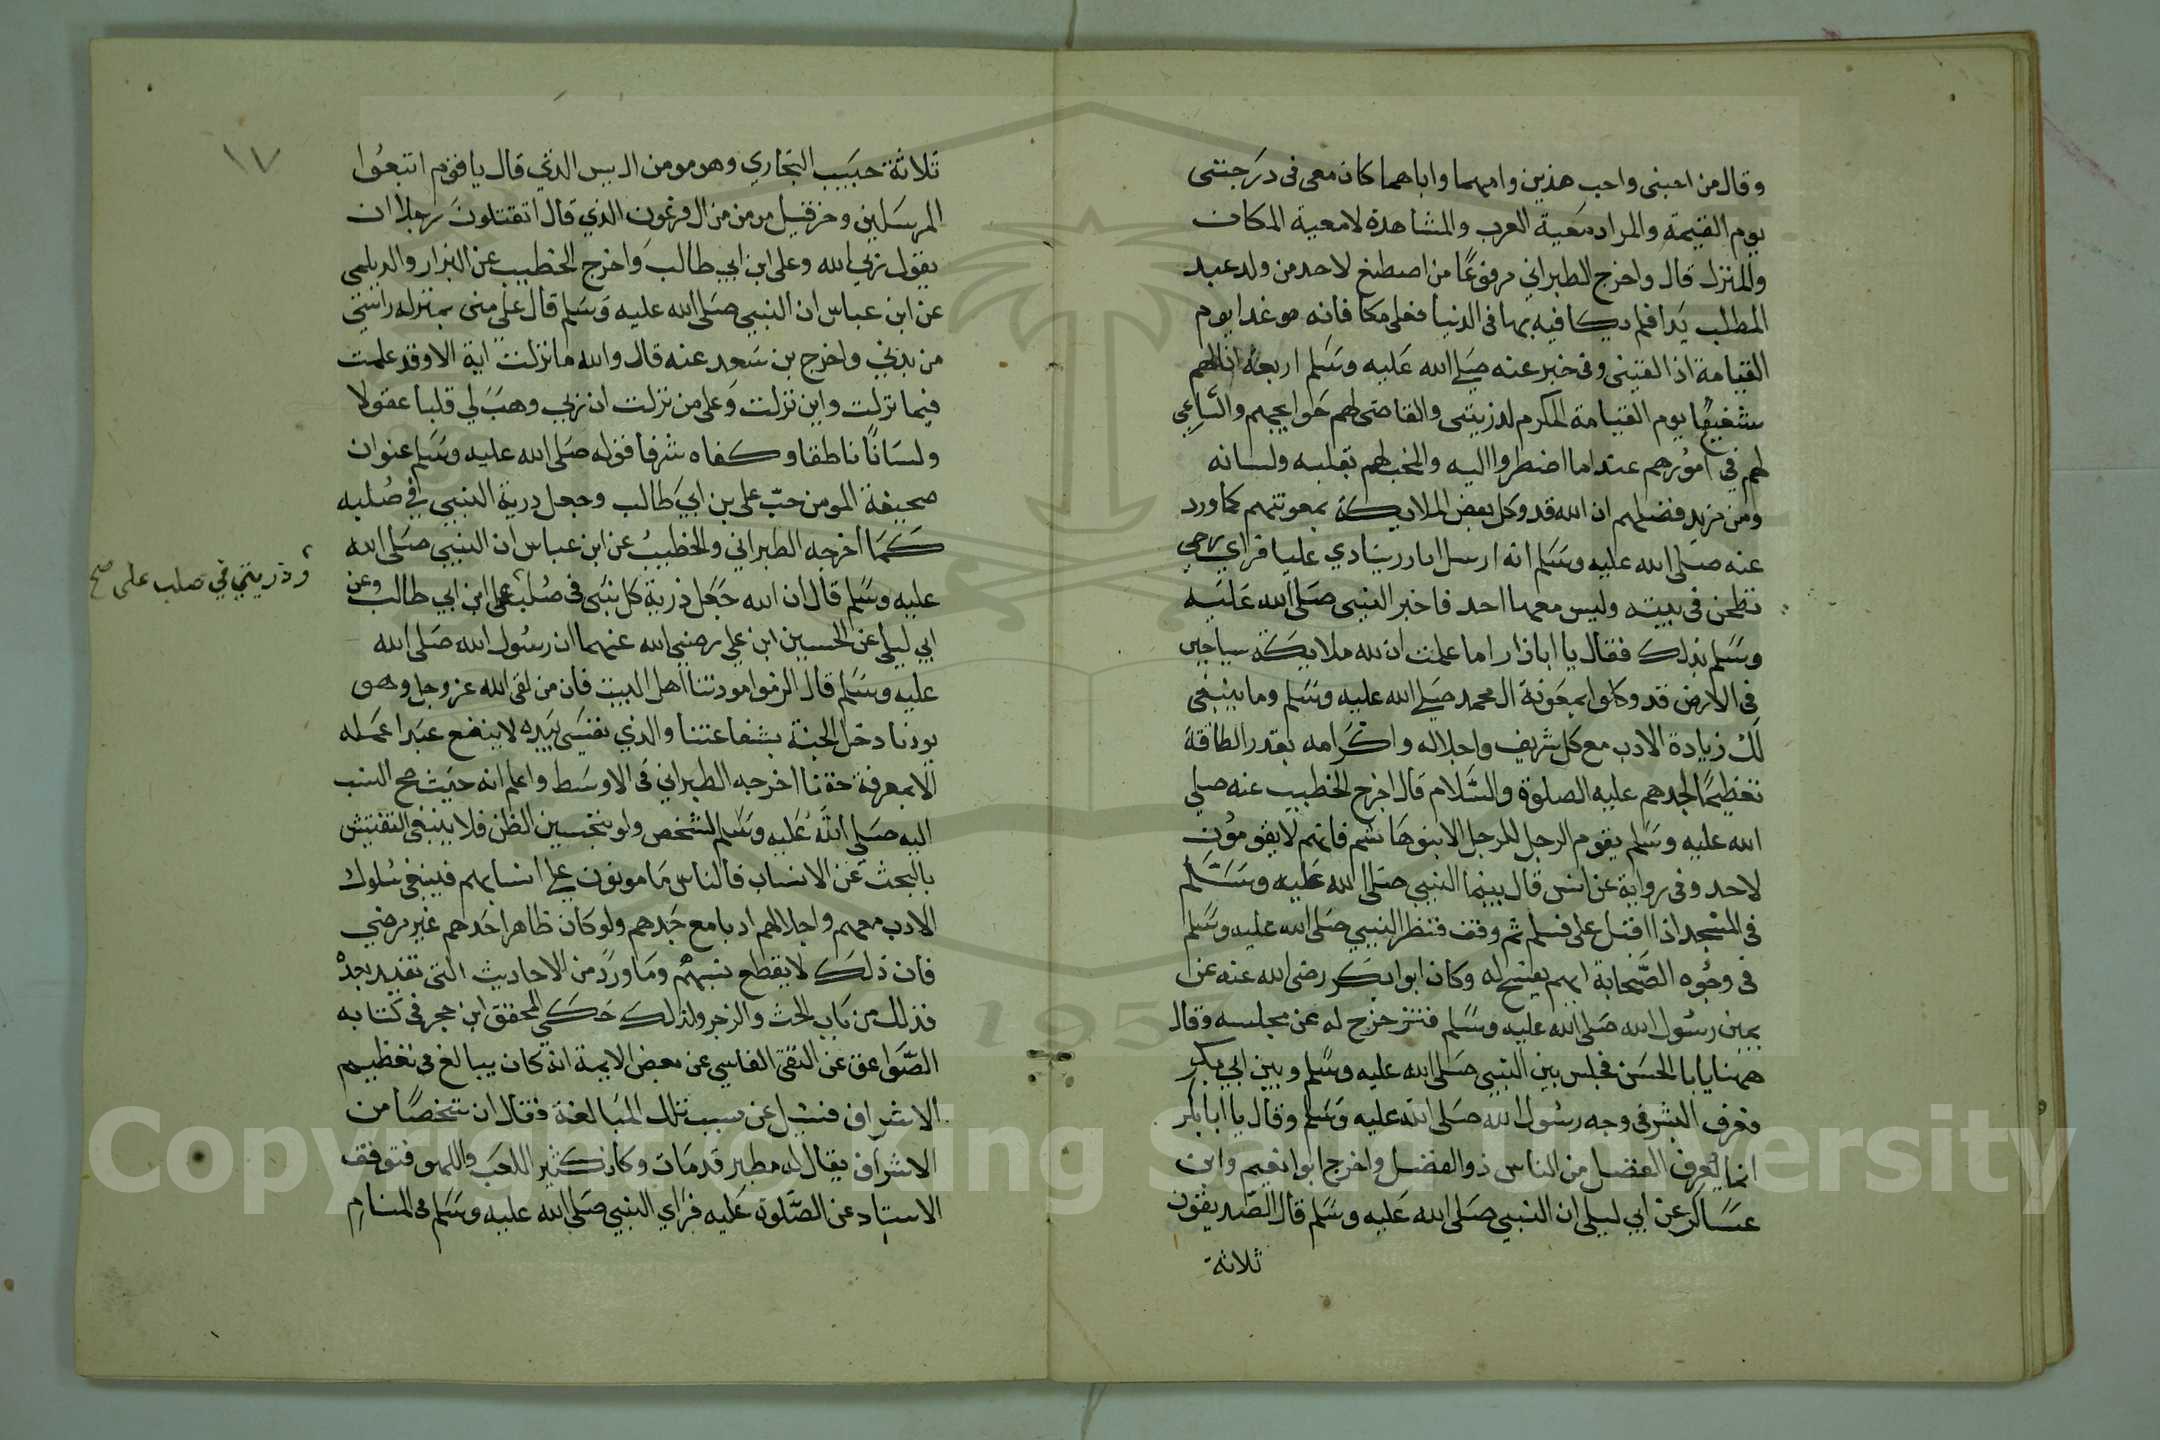 وقال من احبنى واحب هذين وامهما واباهما كان معى فى درجتى
يوم القيمة والمراد معية القرب والمشاهدة لا معية المكان
والمنزل قال واخرج الطبراني مرفوعًا من اصطنع لاحد من ولد عبد
المطلب يدا فلم يكافيه بها فى الدنيا فعلى مكافاته غدا يوم
القيامة اذا لقينى وفى خبر عنه صلى الله عليه وسلم اربعة انا لهم
شفيعًا يوم القيامة المكرم لذريتى والقاضى لهم حوايجهم والساعي
لهم في امورهم عندما اضطروا اليه والمحب لهم بقلبه ولسانه
ومن مزيد فضلهم ان الله قد وكل بعض الملايكة بمعونتهم كما ورد
عنه صلى الله عليه وسلم انه ارسل اباذر ينادي عليا فراي رحى
تطحن فى بيته وليس معها احد فاخبر النبى صلى الله عليه
وسلم بذلك فقال يا اباذر اما علمت ان لله ملايكة سياحين
فى الارض قد وكلوا بمعونة ال محمد صلى الله عليه وسلم وما ينبغى
لك زيادة الادب مع كل شريف واجلاله واكرامه بقدر الطاقة
تعظيمًا لجدهم عليه الصلوة والسلام قال اخرج الخطيب عنه صلى
الله عليه وسلم يقوم الرجل للرجل الا بنو هاشم فانهم لا يقومون
لاحد وفى رواية عن انس قال بينما النبي صلى الله عليه وسلم
فى المسجد اذ اقبل على فسلم ثم وقف فنظر النبي صلى الله عليه وسلم
فى وجوه الصحابة ايهم يفسح له وكان ابو بكر رضى الله عنه عن
يمين رسول الله صلى الله عليه وسلم فتزحزح له عن مجلسه وقال
ههنا يابا الحسن فجلس بين النبي صلى الله عليه وسلم وبين ابي بكر
فعرف البشر فى وجه رسول الله صلى الله عليه وسلم وقال يا ابا بكر
انما يعرف الفضل من الناس ذو الفضل واخرج ابو نعيم وابن
عساكر عن ابي ليلى ان النبي صلى الله عليه وسلم قال الصديقون
ثلاثة
١٧
ثلاثة حبيب النجاري وهو مومن ال يس الذي قال يا قوم اتبعوا
المرسلين وحزقيل مومن من ال فرعون الذي قال اتقتلون رجلا ان
يقول ربي الله وعلى ابن ابي طالب واخرج الخطيب عن البزار والديلمي
عن ابن عباس ان النبي صلى الله عليه وسلم قال على منى بمنزلة راسى
من بدني واخرج بن سعد عنه قال والله ما نزلت اية الا وقد علمت
فيما نزلت واين نزلت وعلى من نزلت ان ربي وهب لي قلبا عقولا
ولسانًا ناطقا وكفاه شرفا قوله صلى الله عليه وسلم عنوان
صحيفة المومن حبّ على بن ابي طالب وجعل درية النبي في صلبه
كما اخرجه الطبراني والخطيب عن ابن عباس ان النبي صلى الله
عليه وسلم قال ان الله جعل ذرية كل نبى فى صلبه على ابن ابي طالب وعن
وذريتي في صلب على صح
ابي ليلى عن الحسين ابن علي رضى الله عنهما ان رسول الله صلى الله
عليه وسلم قال الزموا مودتنا اهل البيت فان من لقى الله عز وجل وهو
يودنا دخل الجنة بشفاعتنا والذي نفسي بيده لا ينفع عبدا عمله
الا بمعرفة حقنا اخرجه الطبراني فى الاوسط واعلم انه حيث صح النسب
اليه صلى الله عليه وسلم لشخص ولو بتحسين الظن فلا ينبغى التفتيش
بالبحث عن الانساب فالناس مامونون على انسابهم فينبغى سلوك
الادب معهم واجلالهم ادبا مع جدهم ولو كان ظاهر احدهم غير مرضي
فان ذلك لا يقطع نسبهم وما ورد من الاحاديث التى
فذلك من باب الحث والزجر ولذلك حكي المحقق ابن حجر فى كتابه
الصواعق عن التقى الفاسي عن بعض الايمة انه كان يبالغ فى تعظيم
الاشراف فسئل عن سبب تلك المبالغة فقال ان شخصًا من
الاشراف يقال له مطير قد مات وكان كثير اللعب واللهو فتوقف
الاستاد عن الصلوة عليه فراي النبي صلى الله عليه وسلم فى المنام
Copyright © King Saud University
1957